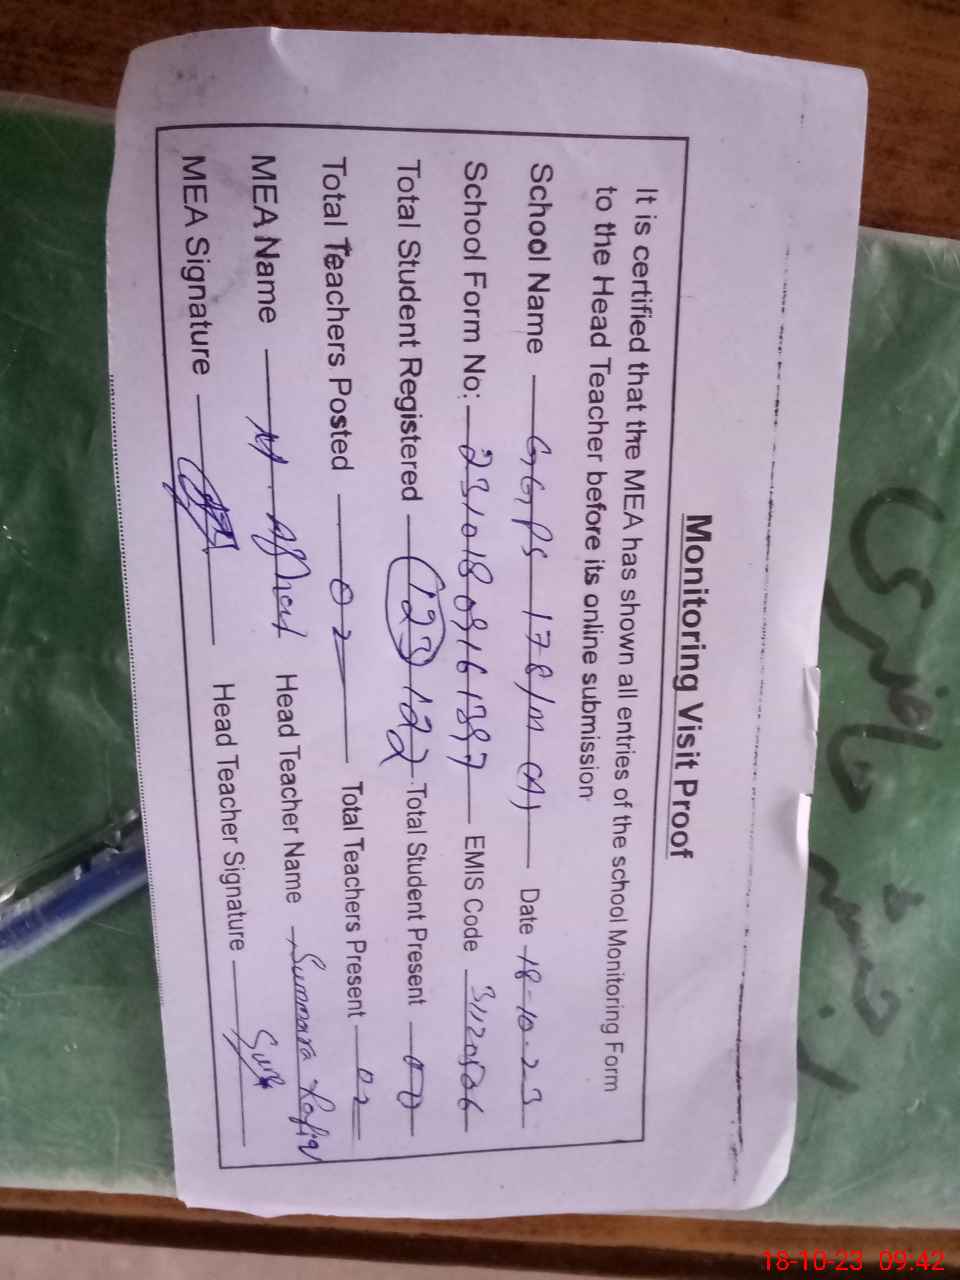 Monitoring Visit Proof
It is certified that the MEA has shown all entries of the school Monitoring Form
to the Head Teacher before its online submission
School Name GGPS 178/M (A) Date 18-10-23
School Form No: 23101809161397 EMIS Code 31120526
Total Student Registered (123) 122 Total Student Present 00
Total Teachers Posted 02 Total Teachers Present 02
MEA Name M. Head Teacher Name Summara Rafiq
MEA Signature Head Teacher Signature
18-10-23 09:42